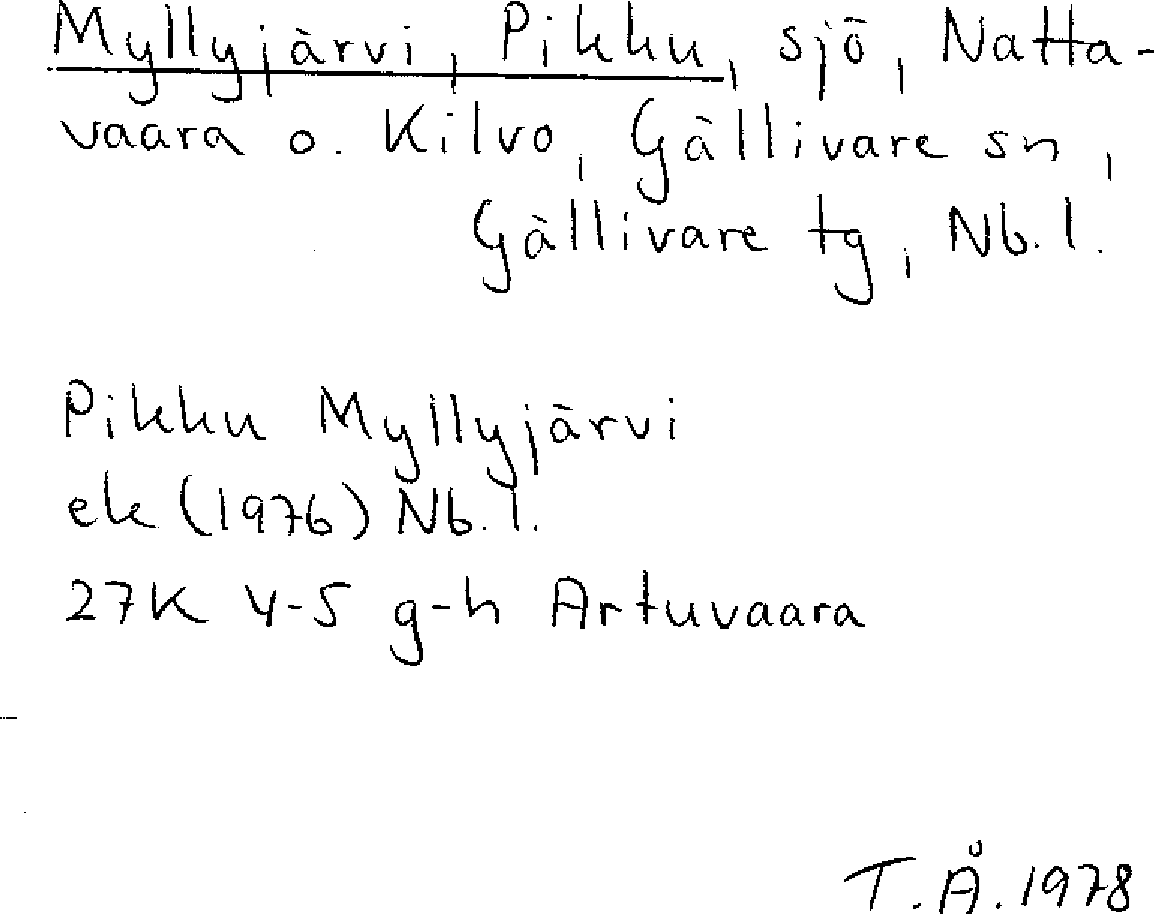 Myllyjärvi, Pikku, sjö, Natta-
vaara o. Kilvo, Gällivare sn,
Gällivare tg, Nb. l.
Pikku Myllyjärvi
ek (1976) Nb. l.
27K 4-5 g-h Artuvaara
T.Å. 1978